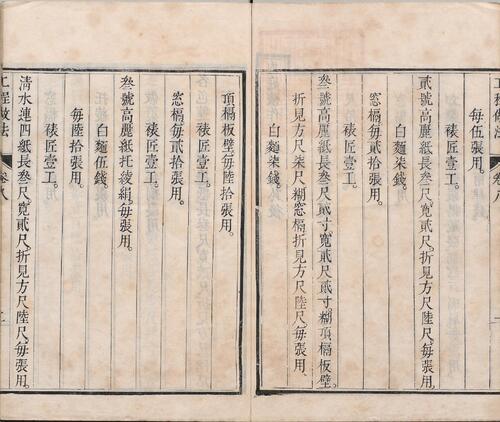 工程做法 卷八 一
每伍張用。
裱匠壹工。
貳號高麗紙長叁尺寬貳尺折見方尺陸尺每張用。
白麵柒錢。
窓槅每貳拾張用。
裱匠壹工。
叁號高麗紙長叁尺貳寸寬貳尺貳寸糊頂槅板壁
折見方尺柒尺糊窓槅折見方尺陸尺每張用
白麵柒錢。
頂槅板壁每陸拾張用。
裱匠壹工。
窓槅每貳拾張用。
裱匠壹工。
叁號高麗紙托綾絹每張用。
白麵伍錢。
每陸拾張用。
裱匠壹工。
清水連四紙長叁尺寬貳尺折見方尺陸尺每張用。
工程做法 卷八 二